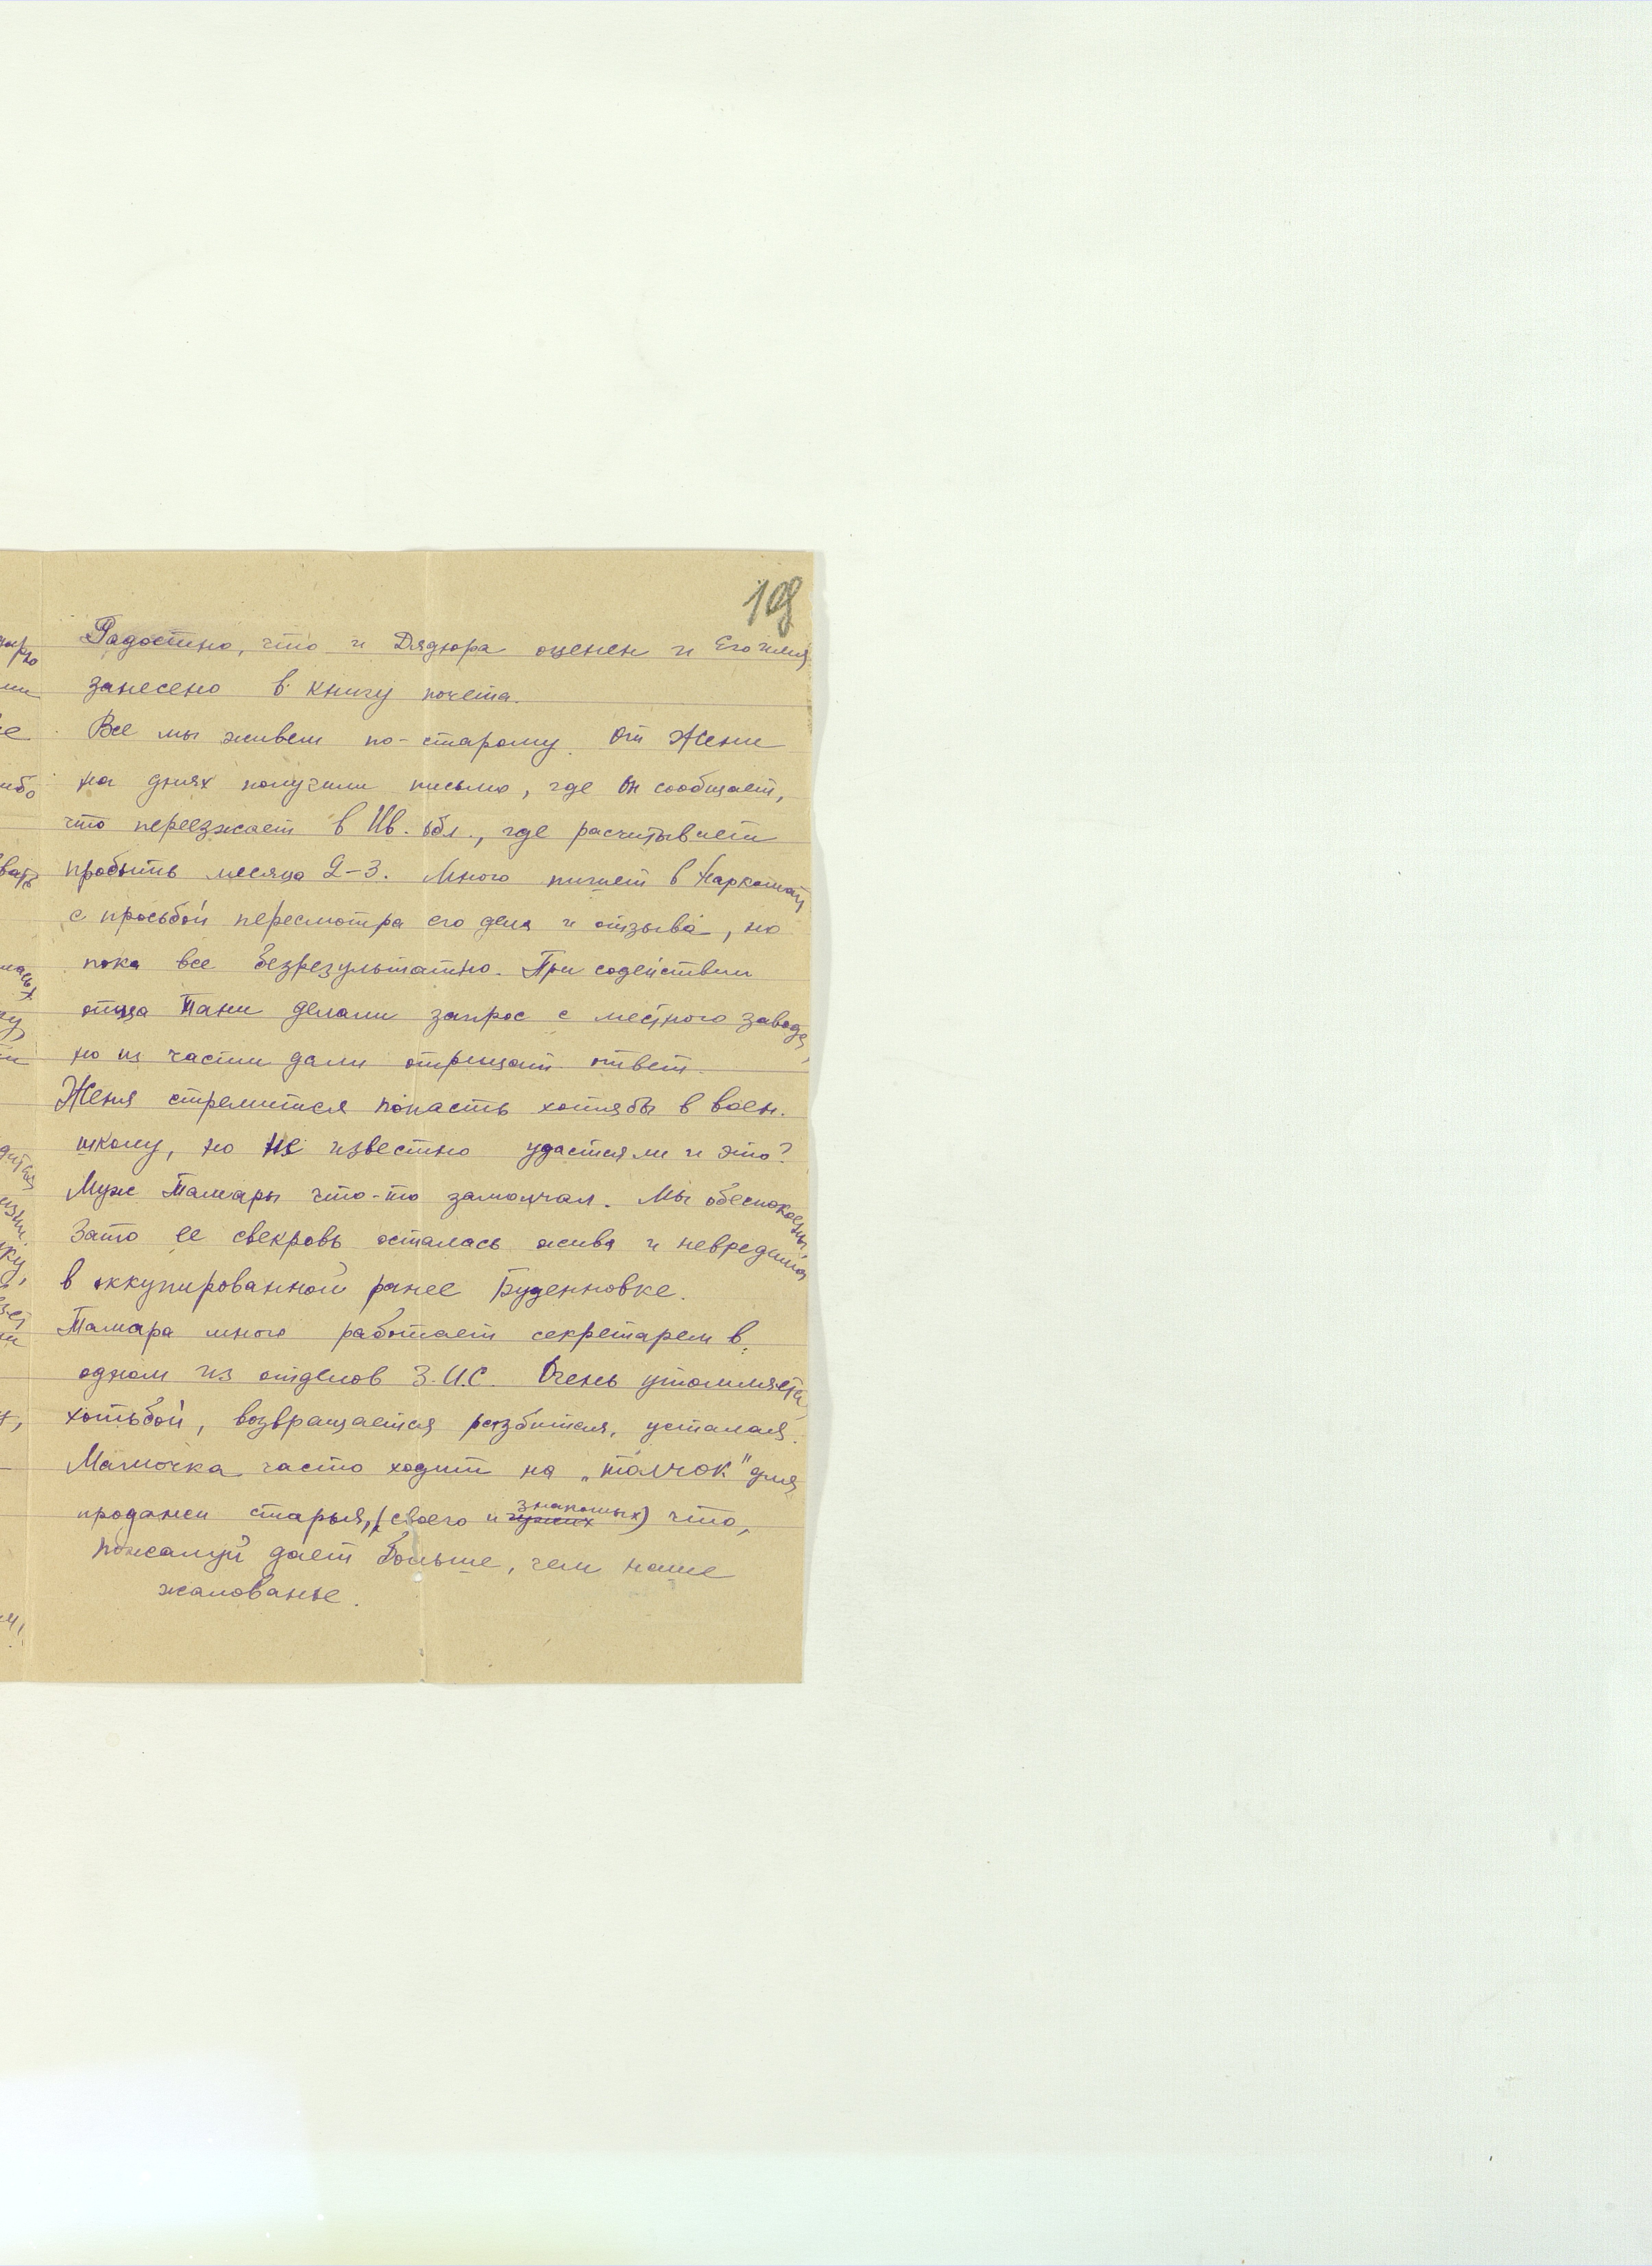 198
Радостно, что и Дядюра оценен и Его имя
занесено в книгу почета.
Все мы живем по-старому. От Жени
на днях получили письмо, где он сообщает,
что переезжает в Ив. обл., где расчитывает
пробыть месяца 2-3. Много пишет в Наркомат
с просьбой пересмотра его дела и отзыва, но
пока все безрезультатно. При содействии
отца Тани делали запрос с местного завода,
но из части дали отрицат. ответ.
Женя стремится попасть хотябы в воен.
школу, но не известно удастся ли и это?
Муж Тамары что-то замолчал. Мы обеспокоены.
Зато ее свекровь осталась жива и невредима
в оккупированной ранее Буденновке.
Тамара много работает секретарем в
одном из отделов З.И.С. Очень утомляется
хотьбой, возвращается разбитая, усталая.
Мамочка часто ходит на „толчок" для
продажи старья, (своего и чужих знакомых) что,
пожалуй дает больше, чем наше
жалованье.